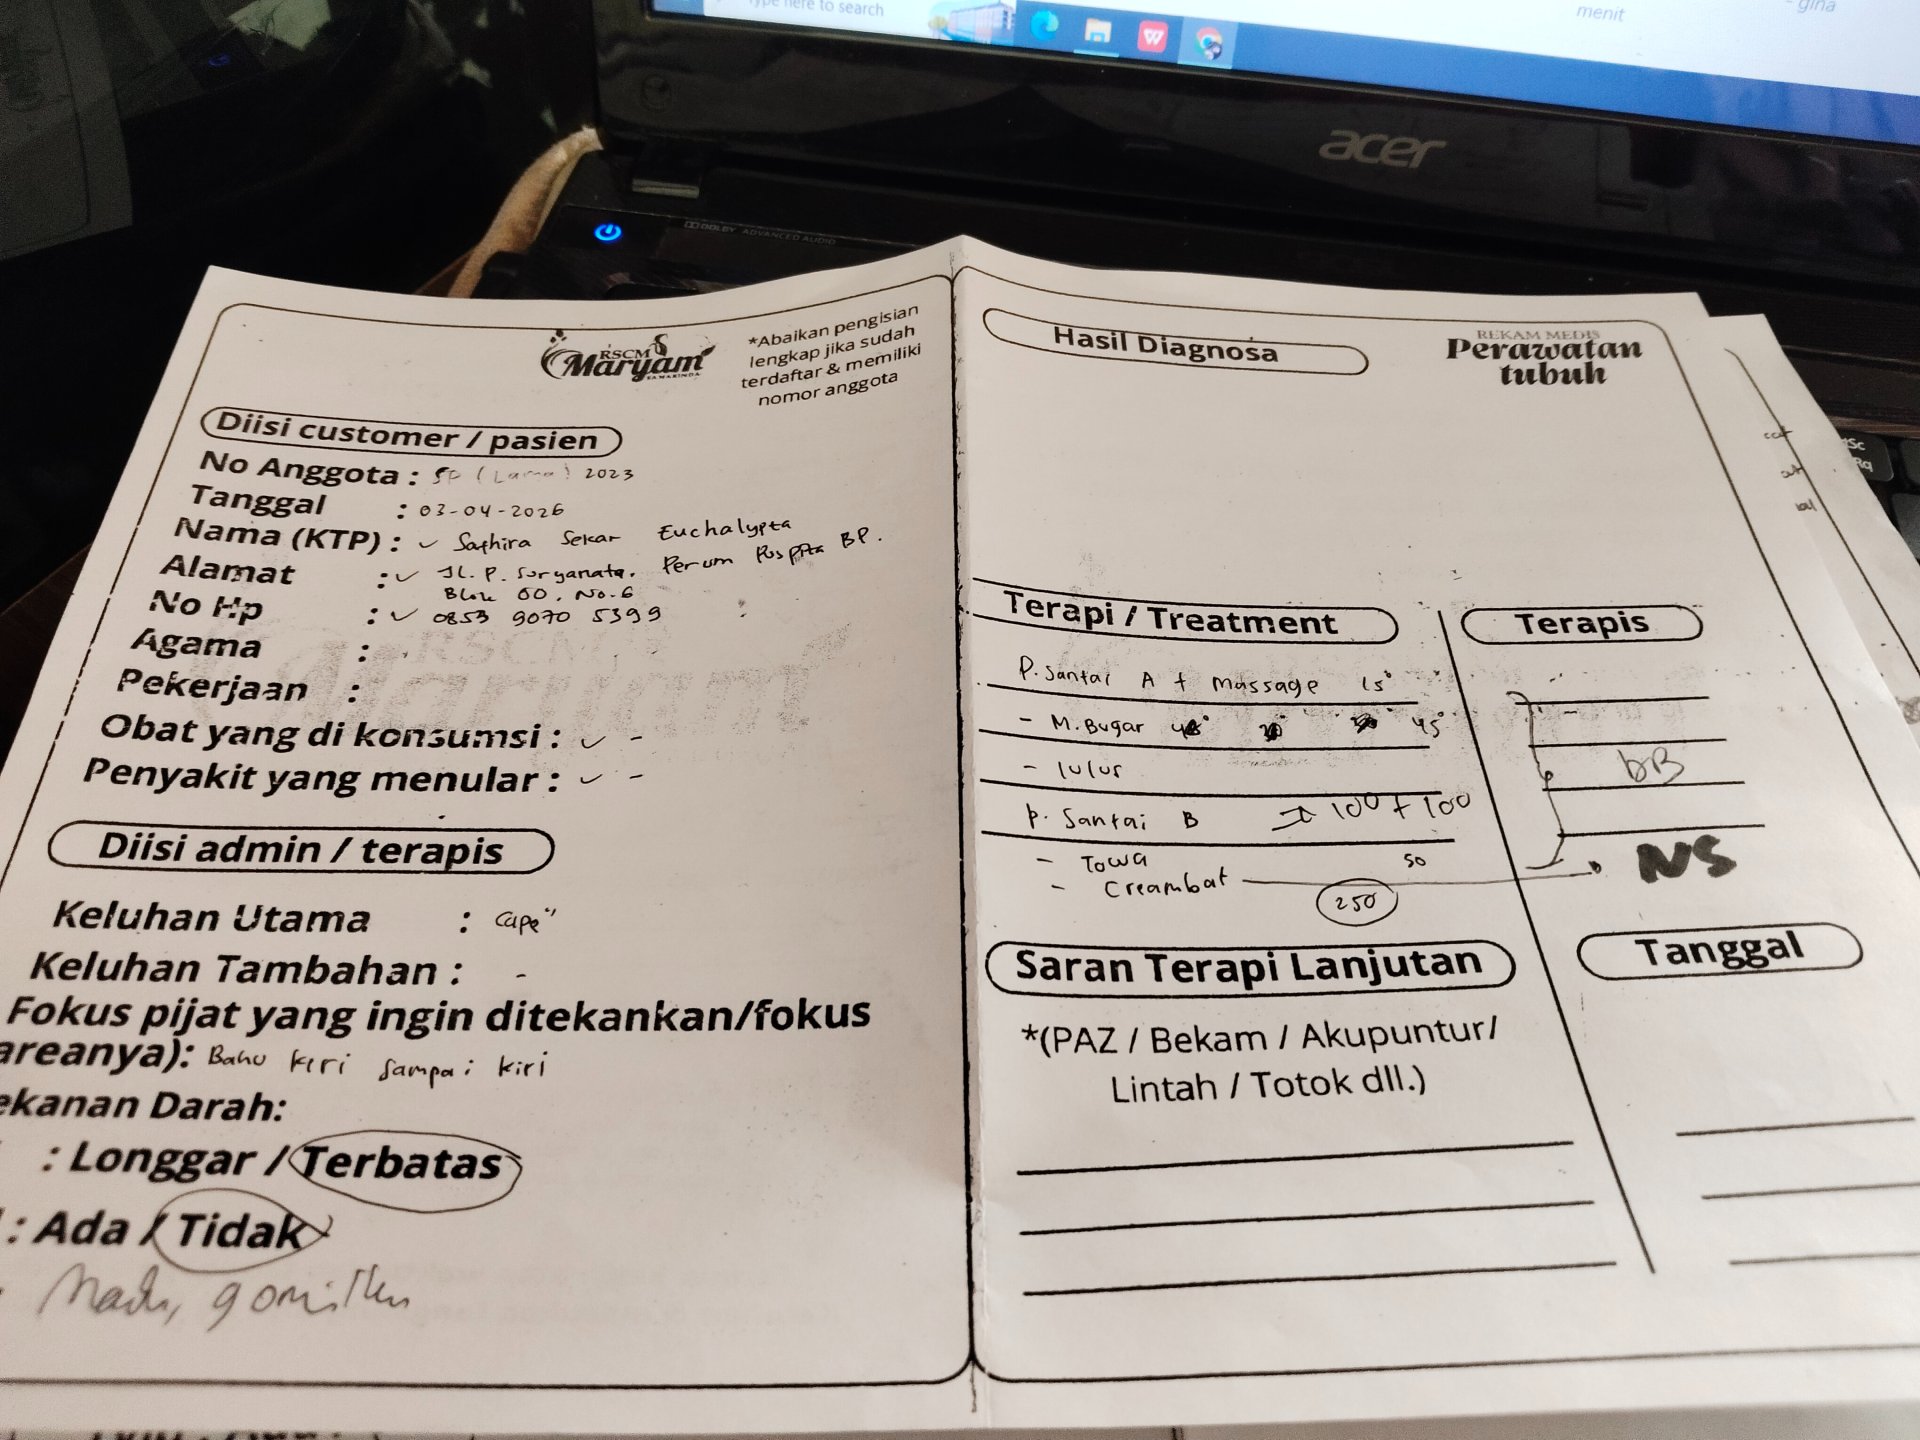 Type here to search
menit
- gina
acer
DOLBY ADVANCED AUDIO
RSCM
Maryam
SAMARINDA
*Abaikan pengisian
lengkap jika sudah
terdaftar & memiliki
nomor anggota
Diisi customer / pasien
No Anggota : SP (Lama) 2023
Tanggal : 03-04-2026
Nama (KTP) : Sathira Sekar Euchalypta
Alamat : Jl. P. Suryanata. Perum Puspita BP.
Blok OO. No. 6
No Hp : 0853 9070 5399
Agama :
Pekerjaan :
Obat yang di konsumsi : -
Penyakit yang menular : -
Diisi admin / terapis
Keluhan Utama : Cape"
Keluhan Tambahan : -
Fokus pijat yang ingin ditekankan/fokus
areanya): Bahu kiri sampai kiri
ekanan Darah:
: Longgar / Terbatas
: Ada / Tidak
Hasil Diagnosa
REKAM MEDIS
Perawatan
tubuh
Terapi / Treatment
Terapis
P. Santai A + Massage 15°
- M. Bugar 45°
- lulur
bB
P. Santai B → 100 + 100
- Towa 50
- Creambat
250
NS
Saran Terapi Lanjutan
Tanggal
*(PAZ / Bekam / Akupuntur/
Lintah / Totok dll.)